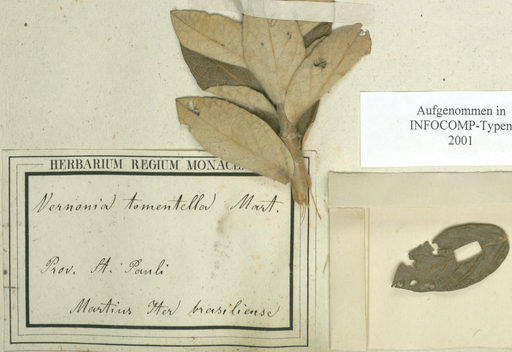 Aufgenommen in
INFOCOMP-Typen
2001
HERBARIUM REGIUM MONACE
Vernonia tomentella Mart.
Prov. St. Pauli
Martius Iter brasiliense